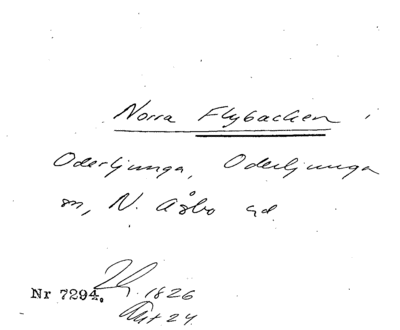 Norra Flybacken i
Oderljunga, Oderljunga
sn, N. Åsbo hd
1826
Nr 7294.
Akt 24